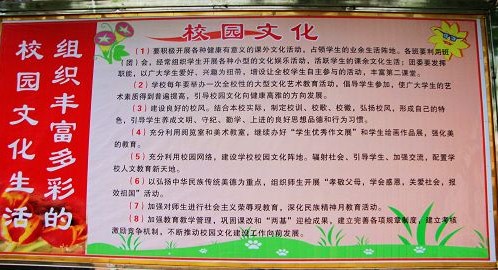 组织丰富多彩的
校园文化生活
校园文化
（1）要积极开展各种健康有意义的课外文化活动，占领学生的业余生活阵地。各班要利用班
（团）会，经常组织学生开展各种小型的文化娱乐活动，活跃学生的课余文化生活；团委要发挥
职能，以广大学生爱好、兴趣为纽带，增设让全校学生自主参与的活动，丰富第二课堂。
（2）学校每年要举办一次全校性的大型文化艺术教育活动，倡导学生参加，使广大学生的艺
术素质得到普遍提高，引导校园文化向健康高雅的方向发展。
（3）建设良好的校风。结合本校实际，制定校训、校歌、校徽，弘扬校风，形成自己的特
色，引导学生养成文明、守纪、勤学、上进的良好思想品德和行为习惯。
（4）充分利用阅览室和美术教室，继续办好“学生优秀作文展”和学生绘画作品展，强化美
的教育。
（5）充分利用校园网络，建设学校校园文化阵地。辐射社会、引导学生、加强交流，配置学
校人文教育新天地。
（6）以弘扬中华民族传统美德为重点，组织师生开展“孝敬父母，学会感恩，关爱社会，报
效祖国”活动。
（7）加强对师生进行社会主义荣辱观教育，深化民族精神月教育活动。
（8）加强教育教学管理，巩固课改和“两基”迎检成果，建立完善各项规章制度，建立考核
激励竞争机制，不断推动校园文化建设工作向前发展。